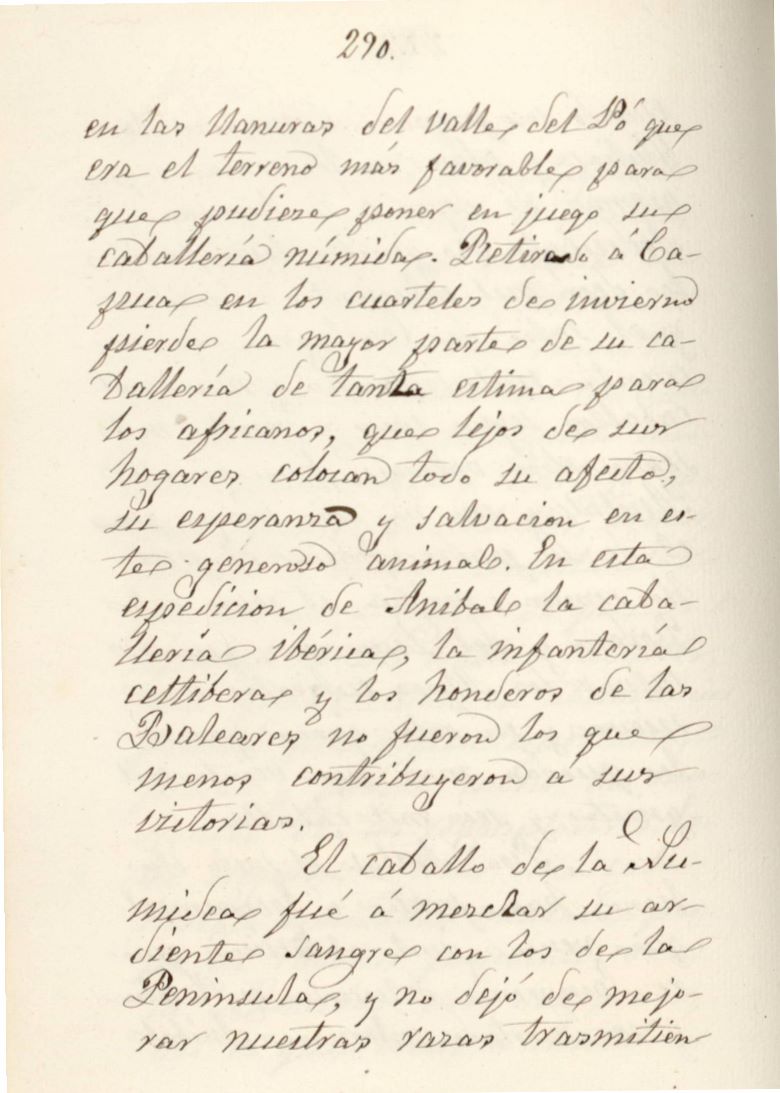 290.
en las llanuras del valle del Pó que
era el terreno más favorable para
que pudiese poner en juego su
caballería númida. Retirado á Ca-
pua en los cuarteles de invierno
pierde la mayor parte de su ca-
ballería de tanta estima para
los africanos, que lejos de sus
hogares colocan todo su afecto,
su esperanza y salvacion en es-
te generoso animal. En esta
espedicion de Anibal la caba-
llería ibérica, la infantería
celtibera y los honderos de las
Baleares no fueron los que
menos contribuyeron á sus
victorias.
El caballo de la Nu-
midea fué á mezclar su ar-
diente sangre con los de la
Peninsula, y no dejó de mejo-
rar nuestras razas trasmitien